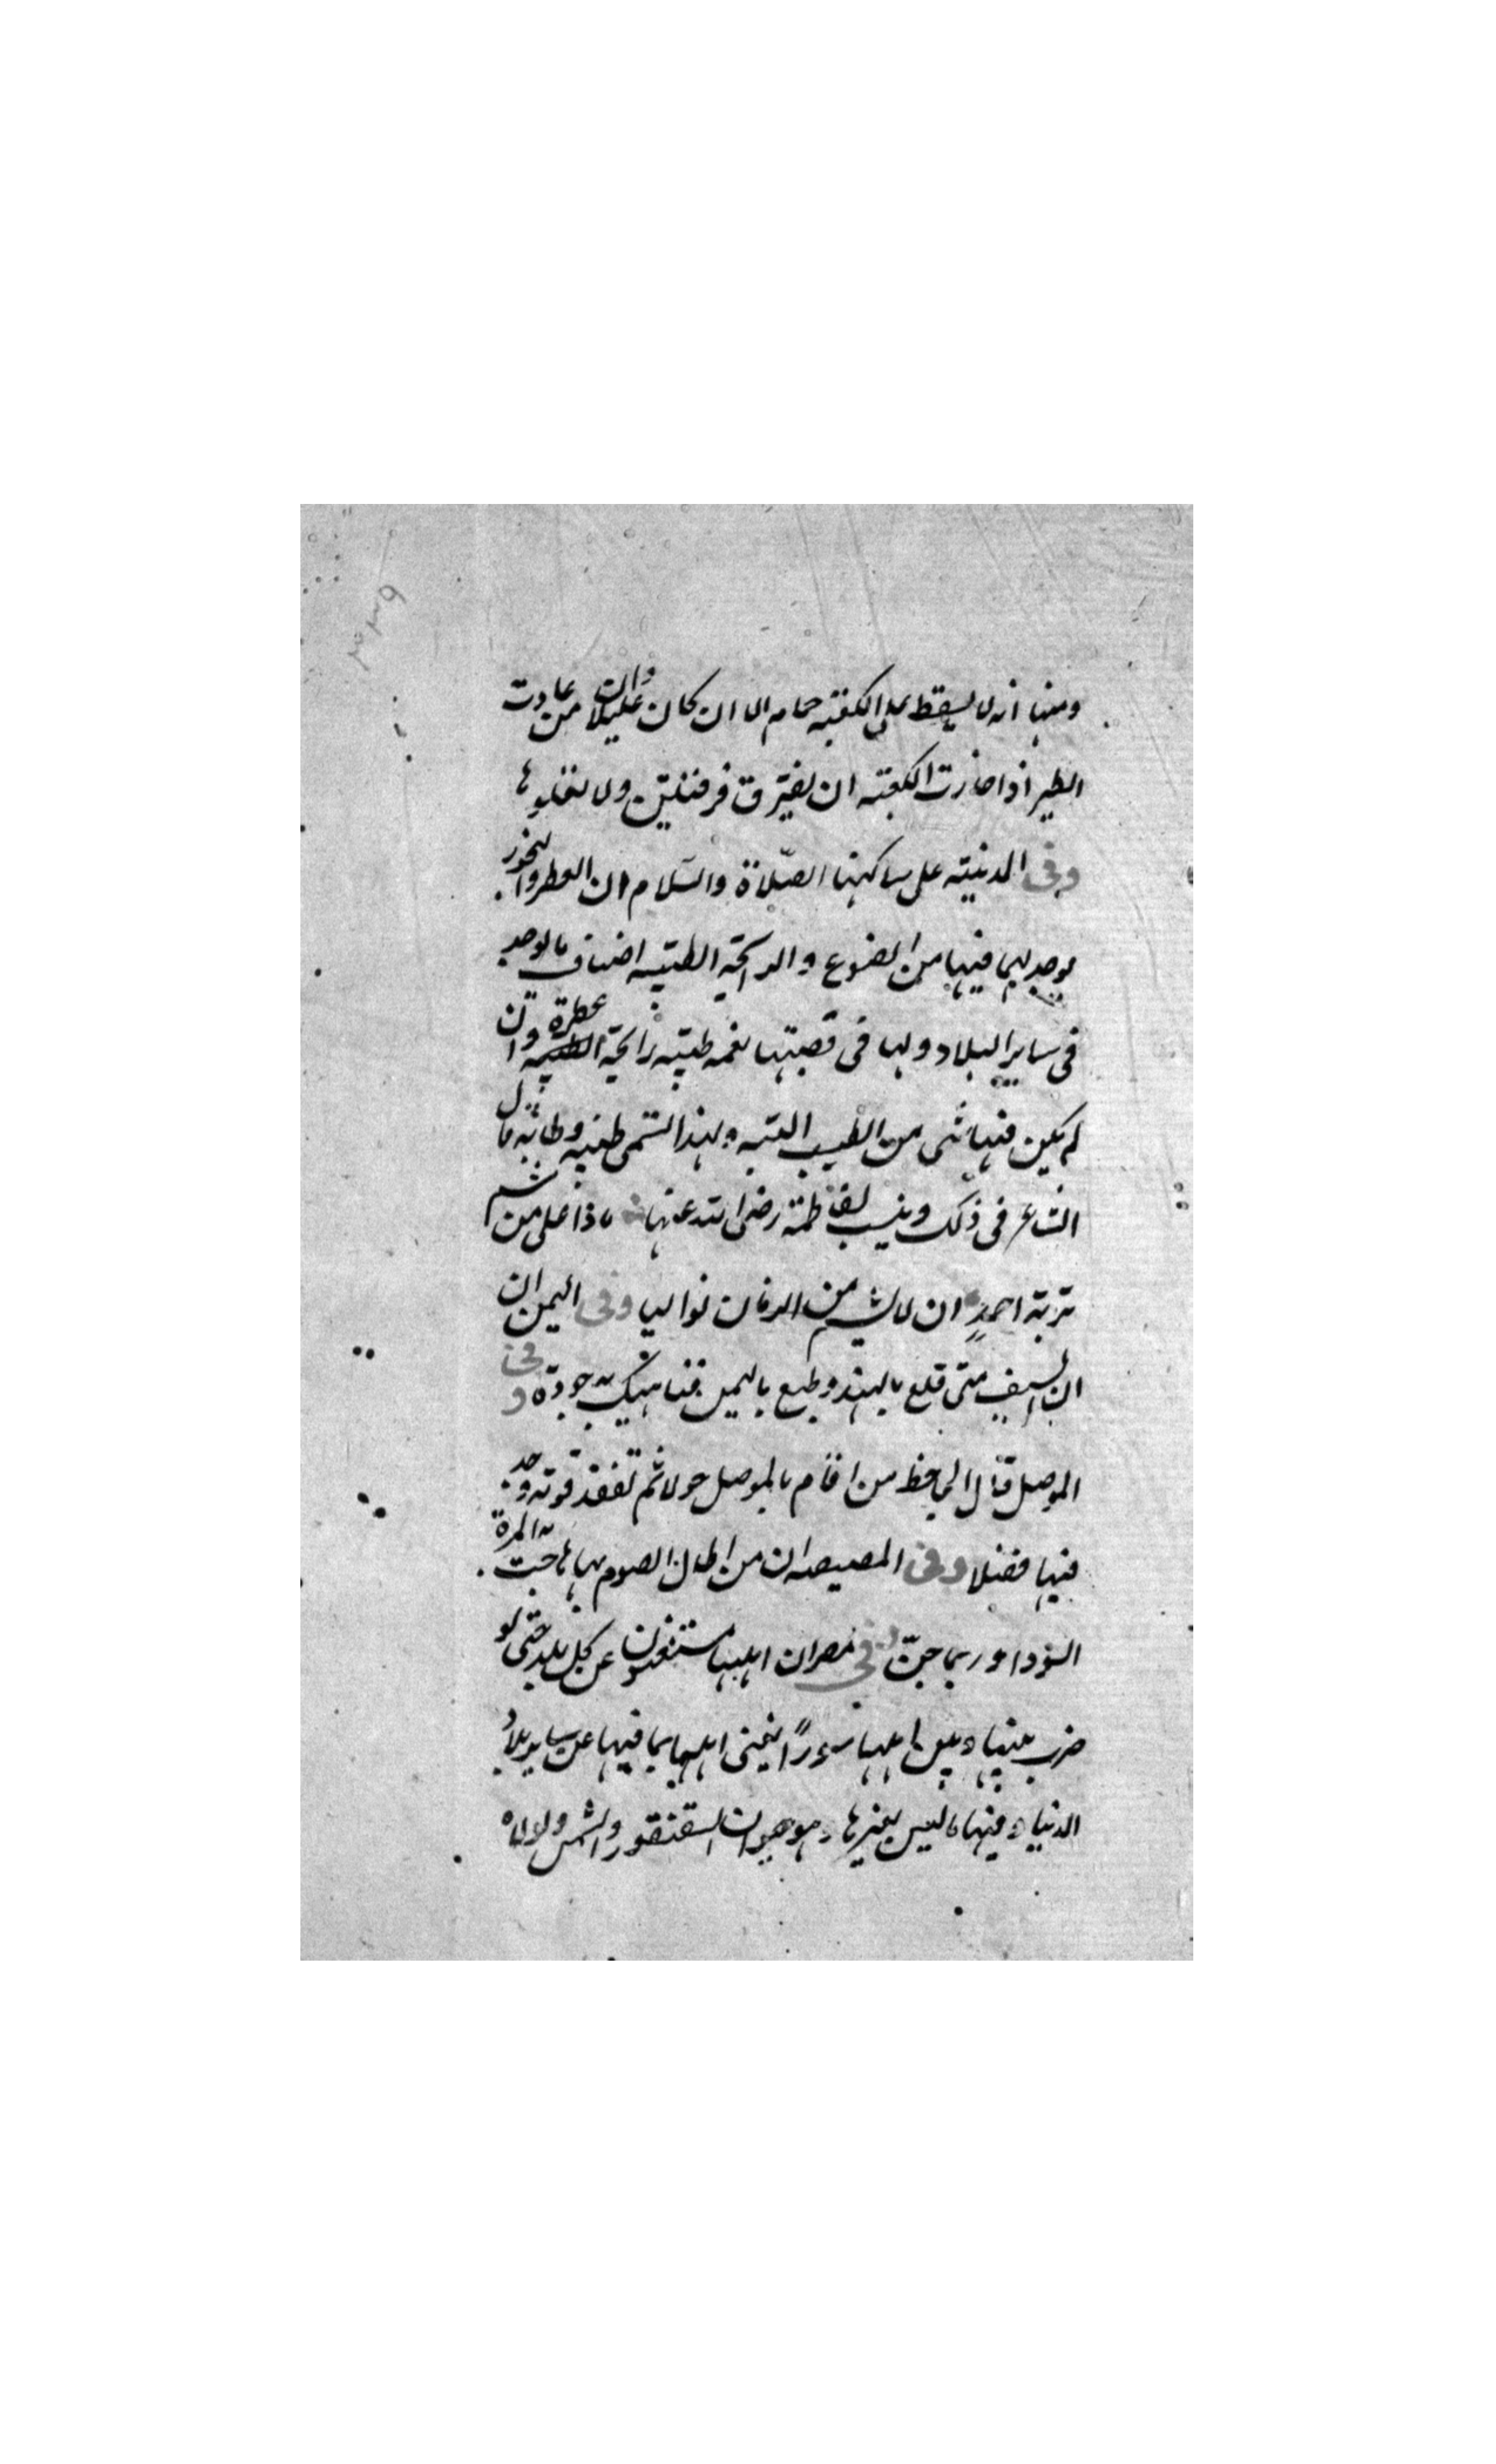 ومنها انه لا يسقط على الكعبة حمام الا ان كان عليلا وان من عادت
الطير اذا حازت الكعبة ان يفترق فرقتين ولا تعلوها
وفى المدينة على ساكنها الصلاة والسلام ان العطر والبخور
يوجد لهما فيها من الضوع والرايحة الطيبة اضعاف ما يوجد
فى ساير البلاد ولها فى قصبتها نغمه طيبه رايحة عطرة وان
لم يكن فيها شى من الطيب البتة ولهذا تسمى طيبه وطابه قال
الشاعر فى ذلك وينسب لفاطمة رضى الله عنها ماذا على من شم
تربة احمد ان لا يشم من الزمان غواليا وفى اليمن ان
ان السيف متى قلع بالهند وطبع باليمن فناهيك به جودة وفى
الموصل قال الجاحظ من اقام بالموصل حولا ثم تفقد قوته وجد
فيها فضلا وفى المصيصه ان من اطال الصوم بها هاجت به المرة
السودا وربما جن وفى مصر ان اهلها مستغنون عن كل بلد حتى لو
ضرب بينها وبين اهلها سورًا يغنى اهلها بما فيها عن ساير بلاد
الدنيا وفيها ما ليس بغيرها وهو حيوان السقنقور والنمس ولولاه